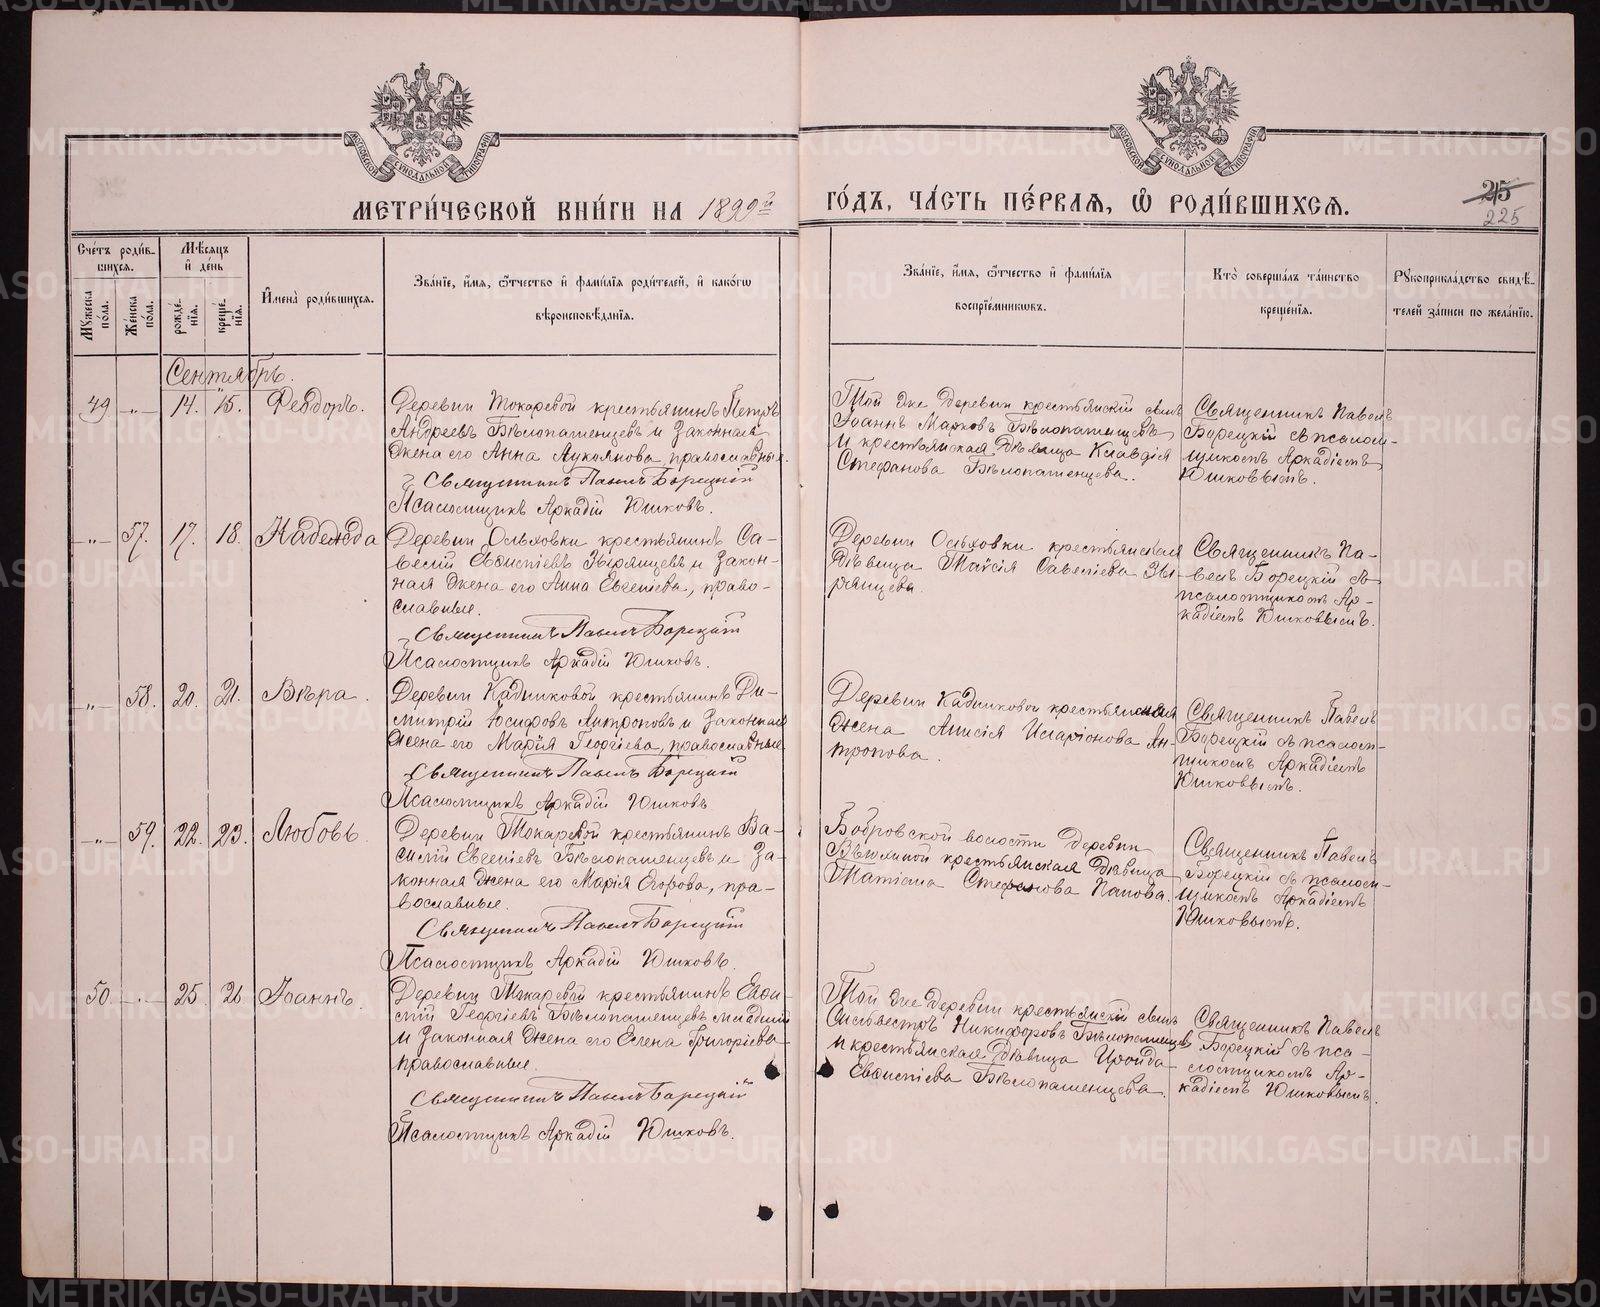 МОСКОВСКОЙ СѴНОДАЛЬНОЙ ТИПОГРАФІИ
МОСКОВСКОЙ СѴНОДАЛЬНОЙ ТИПОГРАФІИ
МЕТРИ́ЧЕСКОЙ КНИ́ГИ НА 1899й ГО́ДЪ, ЧА́СТЬ ПЕ́РВАЯ, Ѿ РОДИ́ВШИХСЯ.
215
225
Сче́тъ роди́в-
шихся.
Мꙋжеска по́ла.
Же́нска по́ла.
Мѣ́сяцъ и̑ де́нь
рожде́-
нїя.
креще́-
нїя.
И҆мена̀ роди́вшихся.
Зва́нїе, и҆́мя, ѻ҆́тчество и҆ фами́лїя роди́телей, и҆ како́гѡ
вѣроисповѣ́данїя.
Зва́нїе, и҆́мя, ѻ҆́тчество и҆ фами́лїя
воспрїе́мниковъ.
Кто̀ соверша́лъ та́инство
креще́нїя.
Рꙋкоприкла́дство свидѣ́-
телей за́писи по жела́нїю.
Сентябрь.
49 -"- 14. 15. Феодоръ.
Деревни Токаревой крестьянинъ Петръ
Андреевъ Бѣлопашенцевъ и законная
жена его Анна Лукоянова, православные.
Священникъ Павелъ Борецкій
Псаломщикъ Аркадій Юшковъ.
Той же деревни крестьянскій сынъ
Іоаннъ Марковъ Бѣлопашенцевъ
и крестьянская дѣвица Клавдія
Стефанова Бѣлопашенцева.
Священникъ Павелъ
Борецкій съ псалом-
щикомъ Аркадіемъ
Юшковымъ.
-"- 57. 17. 18. Надежда
Деревни Ольховки крестьянинъ Са-
велій Звѣрянцевъ и закон-
ная жена его Анна, право-
славные.
Священникъ Павелъ Борецкій
Псаломщикъ Аркадій Юшковъ.
Деревни Ольховки крестьянская
дѣвица Таисія Савеліева
Священникъ Па-
велъ Борецкій съ
псаломщикомъ Ар-
кадіемъ Юшковымъ.
-"- 58. 20. 21. Вѣра.
Деревни Кадниковой крестьянинъ Ди-
митрій Іосифовъ Антроповъ и законная
жена его Марія Георгіева, православные
Священникъ Павелъ Борецкій
Псаломщикъ Аркадій Юшковъ
Деревни Кадниковой крестьянская
жена Анисія Иларіонова Ан-
тропова.
Священникъ Павелъ
Борецкій съ псалом-
щикомъ Аркадіемъ
Юшковымъ.
-"- 59. 22. 23. Любовь.
Деревни Токаревой крестьянинъ Ва-
силій Евгеніевъ Бѣлопашенцевъ и за-
конная жена его Марія Егорова, пра-
вославные.
Священникъ Павелъ Борецкій
Псаломщикъ Аркадій Юшковъ.
Бобровской волости деревни
крестьянская дѣвица
Татіана Стефанова Попова.
Священникъ Павелъ
Борецкій съ псалом-
щикомъ Аркадіемъ
Юшковымъ.
50. -"- 25. 26 Іоаннъ.
Деревни Токаревой крестьянинъ Евѳи-
мій Георгіевъ Бѣлопашенцевъ младшій
и законная жена его Елена Григоріева
православные.
Священникъ Павелъ Борецкій
Псаломщикъ Аркадій Юшковъ.
Той же деревни крестьянскій сынъ
Сильвестръ Никифоровъ Бѣлопашенцев
и крестьянская дѣвица Ираида
Бѣлопашенцева.
Священникъ Павелъ
Борецкій съ пса-
ломщикомъ Ар-
кадіемъ Юшковымъ.
METRIKI.GASO-URAL.RU